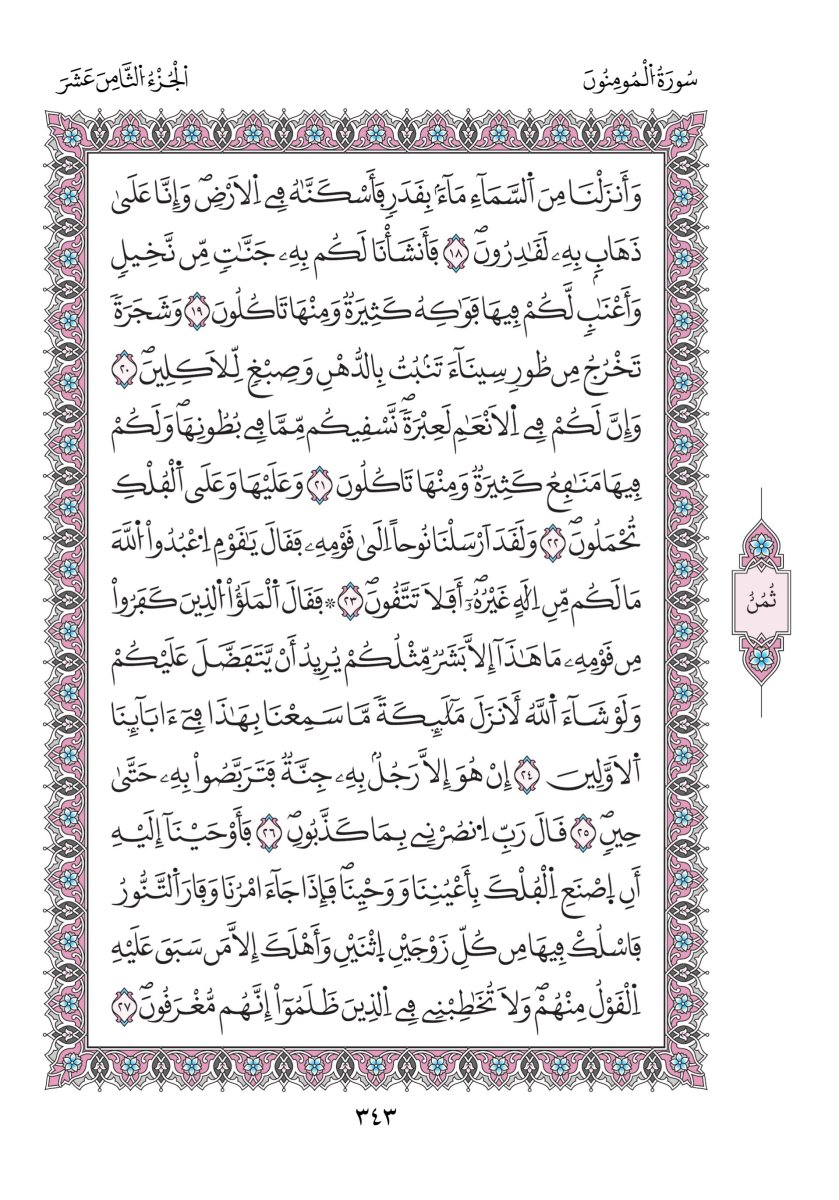 سُورَةُ اُ۬لْمُومِنُونَ
اَ۬لْجُزْءُ اُ۬لثَّامِنَ عَشَرَ
وَأَنزَلْنَا مِنَ اَ۬لسَّمَآءِ مَآءَۢ بِقَدَرٖ فَأَسْكَنَّٰهُ فِے اِ۬لَارْضِۖ وَإِنَّا عَلَىٰ
ذَهَابِۢ بِهِۦ لَقَٰدِرُونَۖ ١٨ فَأَنشَأْنَا لَكُم بِهِۦ جَنَّٰتٖ مِّن نَّخِيلٖ
وَأَعْنَٰبٖ لَّكُمْ فِيهَا فَوَٰكِهُ كَثِيرَةٞ وَمِنْهَا تَاكُلُونَ ١٩ وَشَجَرَةٗ
تَخْرُجُ مِن طُورِ سِينَآءَ تَنۢبُتُ بِالدُّهْنِ وَصِبْغٖ لِّلَاكِلِينَۖ ٢٠
وَإِنَّ لَكُمْ فِے اِ۬لَانْعَٰمِ لَعِبْرَةٗۖ نَّسْقِيكُم مِّمَّا فِے بُطُونِهَاۖ وَلَكُمْ
فِيهَا مَنَٰفِعُ كَثِيرَةٞ وَمِنْهَا تَاكُلُونَ ٢١ وَعَلَيْهَا وَعَلَى اَ۬لْفُلْكِ
تُحْمَلُونَۖ ٢٢ وَلَقَدَ اَرْسَلْنَا نُوحاً اِلَىٰ قَوْمِهِۦ فَقَالَ يَٰقَوْمِ اِ۟عْبُدُواْ اُ۬للَّهَ
مَا لَكُم مِّنِ اِلَٰهٍ غَيْرُهُۥٓۖ أَفَلَا تَتَّقُونَۖ ٢٣ ۞ فَقَالَ اَ۬لْمَلَؤُاْ اُ۬لذِينَ كَفَرُواْ
مِن قَوْمِهِۦ مَا هَٰذَآ إِلَّا بَشَرٞ مِّثْلُكُمْ يُرِيدُ أَنْ يَّتَفَضَّلَ عَلَيْكُمْ
وَلَوْ شَآءَ اَ۬للَّهُ لَأَنزَلَ مَلَٰٓئِكَةٗ مَّا سَمِعْنَا بِهَٰذَا فِےٓ ءَابَآئِنَا
اَ۬لَاوَّلِينَ ٢٤ إِنْ هُوَ إِلَّا رَجُلُۢ بِهِۦ جِنَّةٞ فَتَرَبَّصُواْ بِهِۦ حَتَّىٰ
حِينٖۖ ٢٥ قَالَ رَبِّ اِ۟نصُرْنِے بِمَا كَذَّبُونِۖ ٢٦ فَأَوْحَيْنَآ إِلَيْهِ
أَنِ اِ۪صْنَعِ اِ۬لْفُلْكَ بِأَعْيُنِنَا وَوَحْيِنَاۖ فَإِذَا جَآءَ امْرُنَا وَفَارَ اَ۬لتَّنُّورُ
فَاسْلُكْ فِيهَا مِن كُلِّ زَوْجَيْنِ اِ۪ثْنَيْنِ وَأَهْلَكَ إِلَّا مَن سَبَقَ عَلَيْهِ
اِ۬لْقَوْلُ مِنْهُمْۖ وَلَا تُخَٰطِبْنِے فِے اِ۬لذِينَ ظَلَمُوٓاْ إِنَّهُم مُّغْرَقُونَۖ ٢٧
ثُمُنُ
٣٤٣